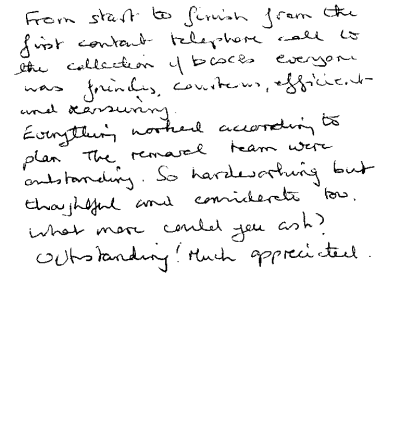 From start to finish from the
first contact telephone call to
the collection of boxes everyone
was friendly, courteous, efficient
and reassuring.
Everything worked according to
plan The removal team were
outstanding. So hardworking but
thoughtful and considerate too.
What more could you ask?
Outstanding! Much appreciated.